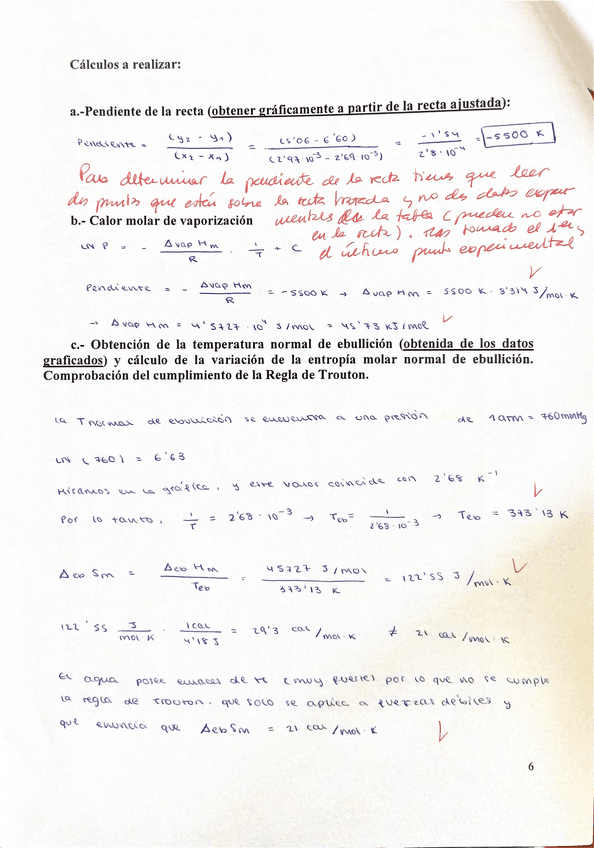 Cálculos a realizar:
a.-Pendiente de la recta (obtener gráficamente a partir de la recta ajustada):
Pendiente = (y2 - y1) / (x2 - x1) = (5'06 - 6'60) / (2'97·10⁻³ - 2'69·10⁻³) = -1'54 / 2'8·10⁻⁴ = -5500 K
Para determinar la pendiente de la recta tienes que leer
dos puntos que estén sobre la recta trazada y no dos datos experi
b.- Calor molar de vaporización
mentales de la tabla (pueden no estar
en la recta). Has tomado el 1er y
LN P = - Δvap Hm / R · 1/T + C
el último punto experimental
Pendiente = - Δvap Hm / R = -5500K → Δvap Hm = 5500 K · 8'314 J/mol·K
→ Δvap Hm = 4'5727 · 10⁴ J/mol = 45'73 kJ/mol
c.- Obtención de la temperatura normal de ebullición (obtenida de los datos
graficados) y cálculo de la variación de la entropía molar normal de ebullición.
Comprobación del cumplimiento de la Regla de Trouton.
la Tnormal de ebullición se encuentra a una presión de 1 atm = 760mmHg
LN (760) = 6'63
Miramos en la gráfica, y este valor coincide con 2'68 K⁻¹
Por lo tanto, 1/T = 2'68 · 10⁻³ → Teb = 1 / 2'68·10⁻³ → Teb = 373'13 K
Δeb Sm = Δeb Hm / Teb = 45727 J/mol / 373'13 K = 122'55 J/mol·K
122'55 J / mol·K · 1cal / 4'18 J = 29'3 cal/mol·K ≠ 21 cal/mol·K
El agua posee enlaces de H (muy fuertes) por lo que no se cumple
la regla de Trouton, que solo se aplica a fuerzas débiles y
que enuncia que Δeb Sm = 21 cal/mol·K
6